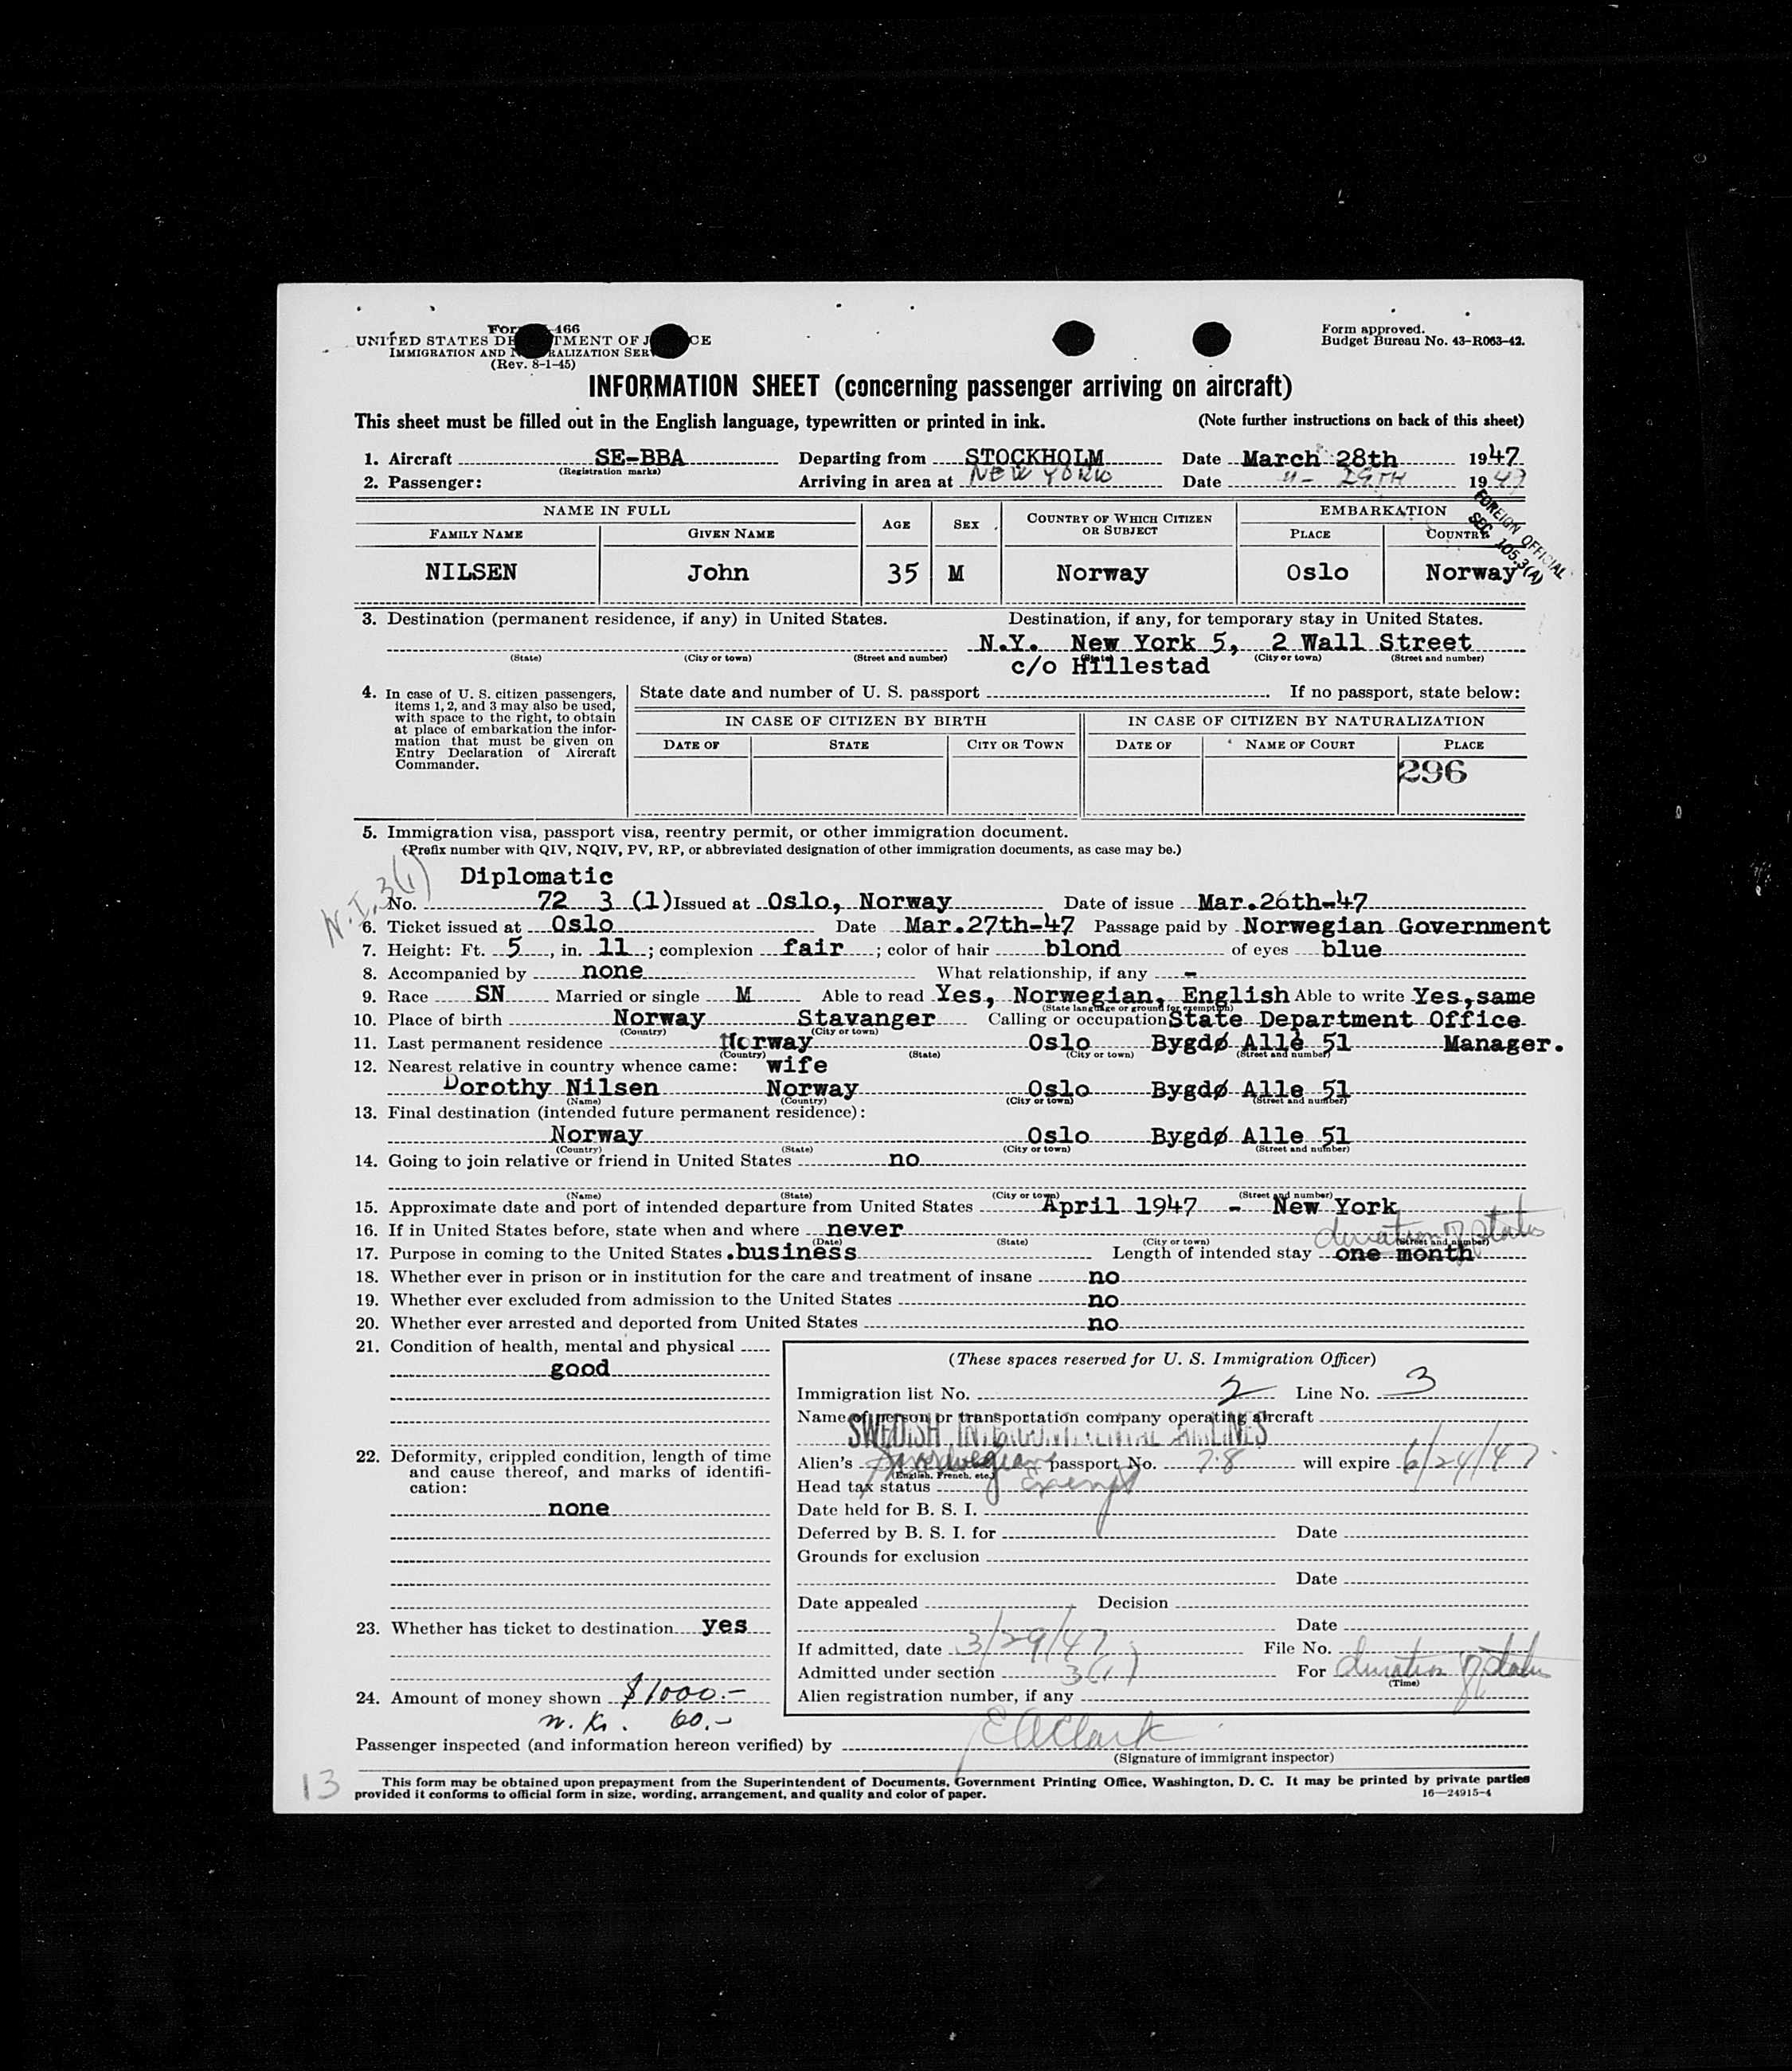 Form 466
UNITED STATES DE TMENT OF J CE
IMMIGRATION AND N RALIZATION SER
(Rev. 8-1-45)
Form approved.
Budget Bureau No. 43-R063-42.
INFORMATION SHEET (concerning passenger arriving on aircraft)
This sheet must be filled out in the English language, typewritten or printed in ink. (Note further instructions on back of this sheet)
1. Aircraft SE-BBA Departing from STOCKHOLM Date March 28th 1947
(Registration marks)
2. Passenger: Arriving in area at NEW YORK Date -"- 29TH 1947
FOREIGN OFFICIAL
SEC. 105.3(A)
NAME IN FULL AGE SEX COUNTRY OF WHICH CITIZEN OR SUBJECT EMBARKATION
FAMILY NAME GIVEN NAME PLACE COUNTRY
NILSEN John 35 M Norway Oslo Norway
3. Destination (permanent residence, if any) in United States. Destination, if any, for temporary stay in United States.
N.Y. New York 5, 2 Wall Street
(State) (City or town) (Street and number) (State) (City or town) (Street and number)
c/o Hillestad
4. In case of U. S. citizen passengers, items 1, 2, and 3 may also be used, with space to the right, to obtain at place of embarkation the information that must be given on Entry Declaration of Aircraft Commander.
State date and number of U. S. passport If no passport, state below:
IN CASE OF CITIZEN BY BIRTH IN CASE OF CITIZEN BY NATURALIZATION
DATE OF STATE CITY OR TOWN DATE OF NAME OF COURT PLACE
296
5. Immigration visa, passport visa, reentry permit, or other immigration document.
(Prefix number with QIV, NQIV, PV, RP, or abbreviated designation of other immigration documents, as case may be.)
N.I. 3(1)
Diplomatic
No. 72 3 (1) Issued at Oslo, Norway Date of issue Mar.26th-47
6. Ticket issued at Oslo Date Mar.27th-47 Passage paid by Norwegian Government
7. Height: Ft. 5, in. 11; complexion fair; color of hair blond of eyes blue
8. Accompanied by none What relationship, if any -
9. Race SN Married or single M Able to read Yes, Norwegian, English Able to write Yes, same
(State language or ground for exemption)
10. Place of birth Norway Stavanger Calling or occupation State Department Office
(Country) (City or town)
11. Last permanent residence Norway Oslo Bygdø Allé 51 Manager.
(Country) (State) (City or town) (Street and number)
12. Nearest relative in country whence came: wife
Dorothy Nilsen Norway Oslo Bygdø Alle 51
(Name) (Country) (City or town) (Street and number)
13. Final destination (intended future permanent residence):
Norway Oslo Bygdø Alle 51
(Country) (State) (City or town) (Street and number)
14. Going to join relative or friend in United States no
(Name) (State) (City or town) (Street and number)
15. Approximate date and port of intended departure from United States April 1947 - New York
16. If in United States before, state when and where never
(Date) (State) (City or town) (Street and number)
duration of status
17. Purpose in coming to the United States business Length of intended stay one month
18. Whether ever in prison or in institution for the care and treatment of insane no
19. Whether ever excluded from admission to the United States no
20. Whether ever arrested and deported from United States no
21. Condition of health, mental and physical
good
22. Deformity, crippled condition, length of time and cause thereof, and marks of identification:
none
23. Whether has ticket to destination yes
24. Amount of money shown $1000.-
n. Kr. 60.-
(These spaces reserved for U. S. Immigration Officer)
Immigration list No. 2 Line No. 3
Name of person or transportation company operating aircraft
SWEDISH INTERCONTINENTAL AIRLINES
Alien's Norwegian passport No. 78 will expire 6/24/47
(English, French, etc.)
Head tax status Exempt
Date held for B. S. I.
Deferred by B. S. I. for Date
Grounds for exclusion
Date
Date appealed Decision
Date
If admitted, date 3/29/47 File No.
Admitted under section 3(1) For duration of status
(Time)
Alien registration number, if any
Passenger inspected (and information hereon verified) by E A Clark
(Signature of immigrant inspector)
13
This form may be obtained upon prepayment from the Superintendent of Documents, Government Printing Office, Washington, D. C. It may be printed by private parties
provided it conforms to official form in size, wording, arrangement, and quality and color of paper. 16—24915-4